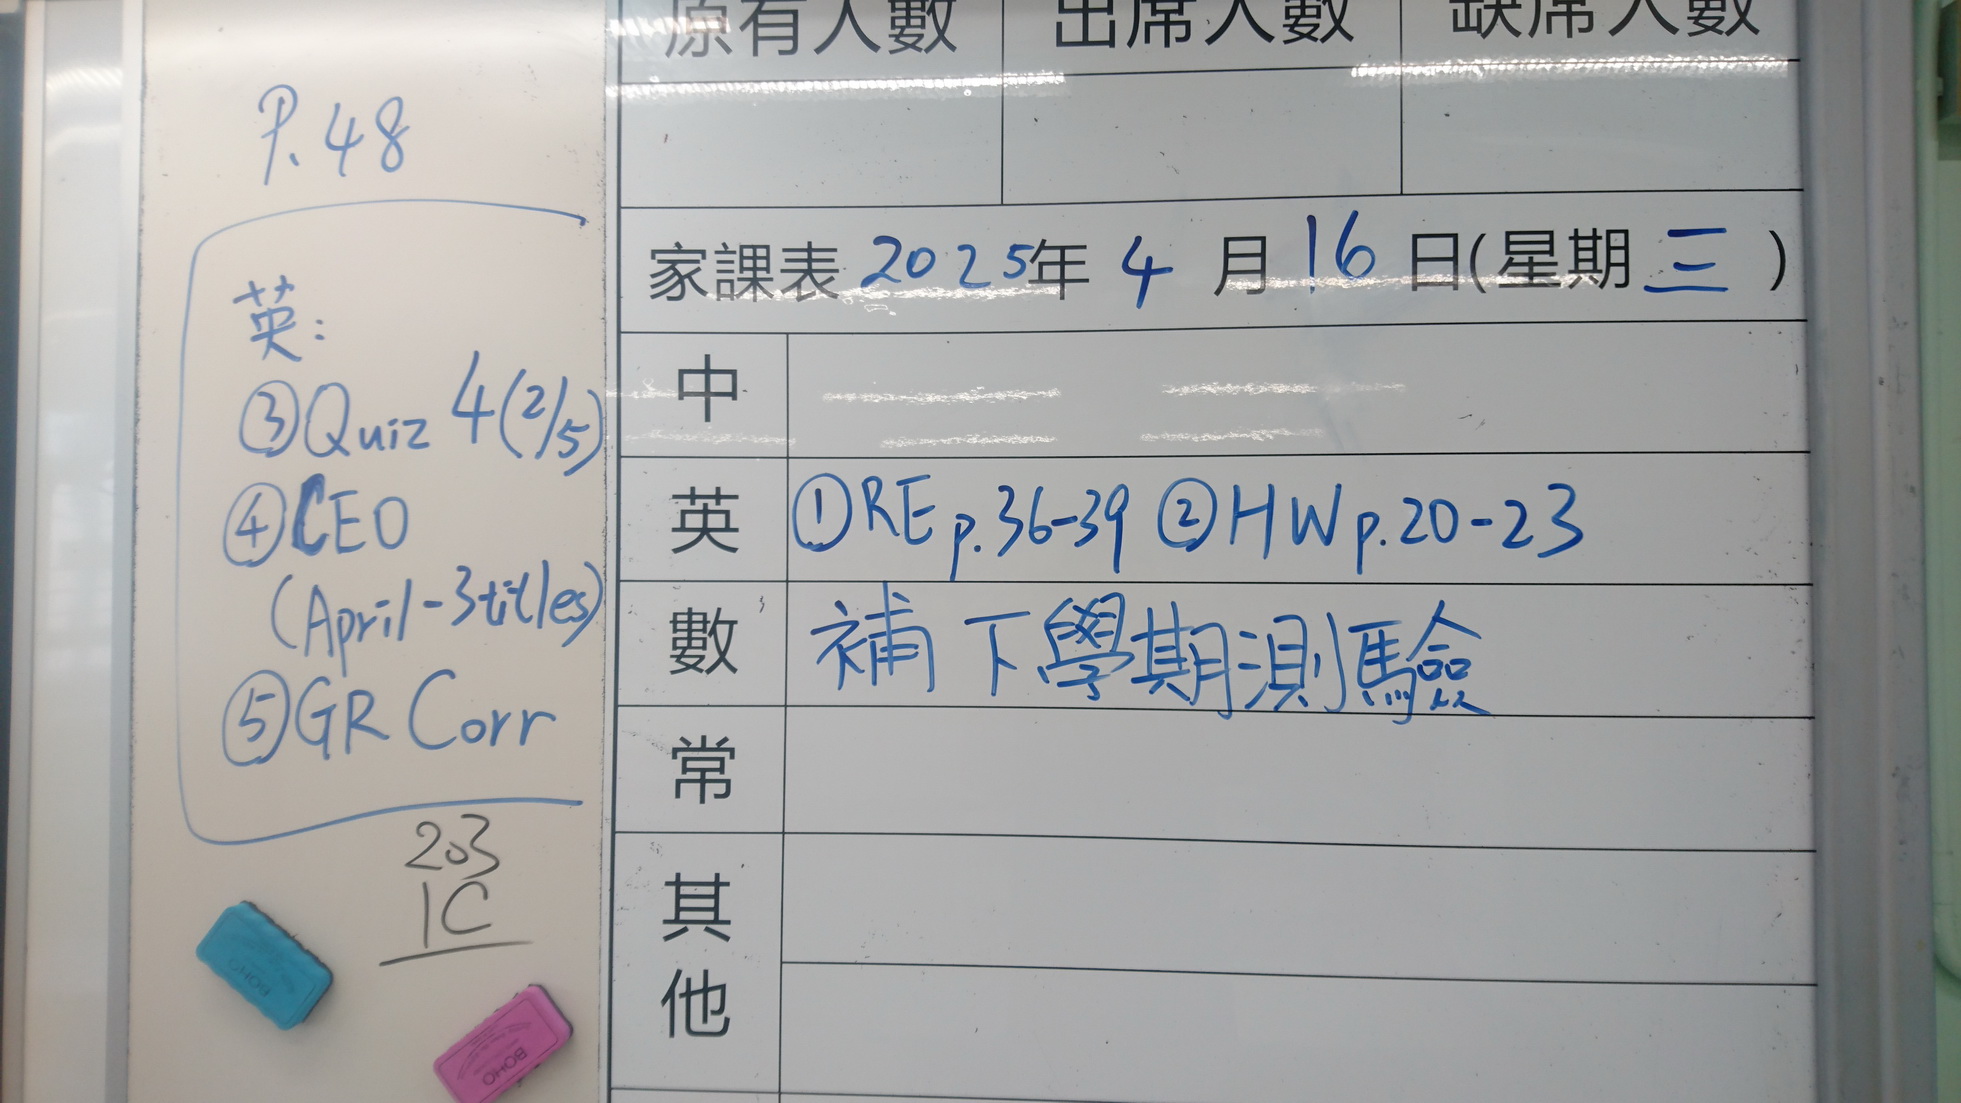 原有人數 出席人數 缺席人數
P.48
家課表 2025年 4 月 16 日(星期 三 )
中
英 ①RE p.36-39 ②HW p.20-23
數 補下學期測驗
常
其他
英:
③Quiz 4(2/5)
④CEO
(April-3titles)
⑤GR Corr
203
1C
BOHO
BOHO